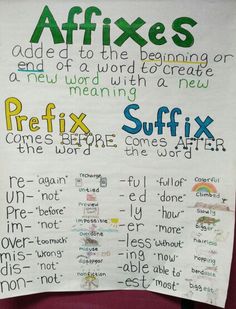 Affixes
added to the beginning or
end of a word to create
a new word with a new
meaning
Prefix
comes BEFORE
the word
Suffix
comes AFTER
the word
re- "again" recharge
un- "not" untied
Pre- "before" Preview
im- "not" impossible
over- "too much" overdone
mis- "wrong" misuse
dis- "not" disappear
non- "not" nonfiction
-ful "full of" Colorful
-ed "done" Climbed
-ly "how" Slowly
-er "more" bigger
-less "without" hairless
-ing "now" hopping
-able "able to" bendable
-est "most" biggest